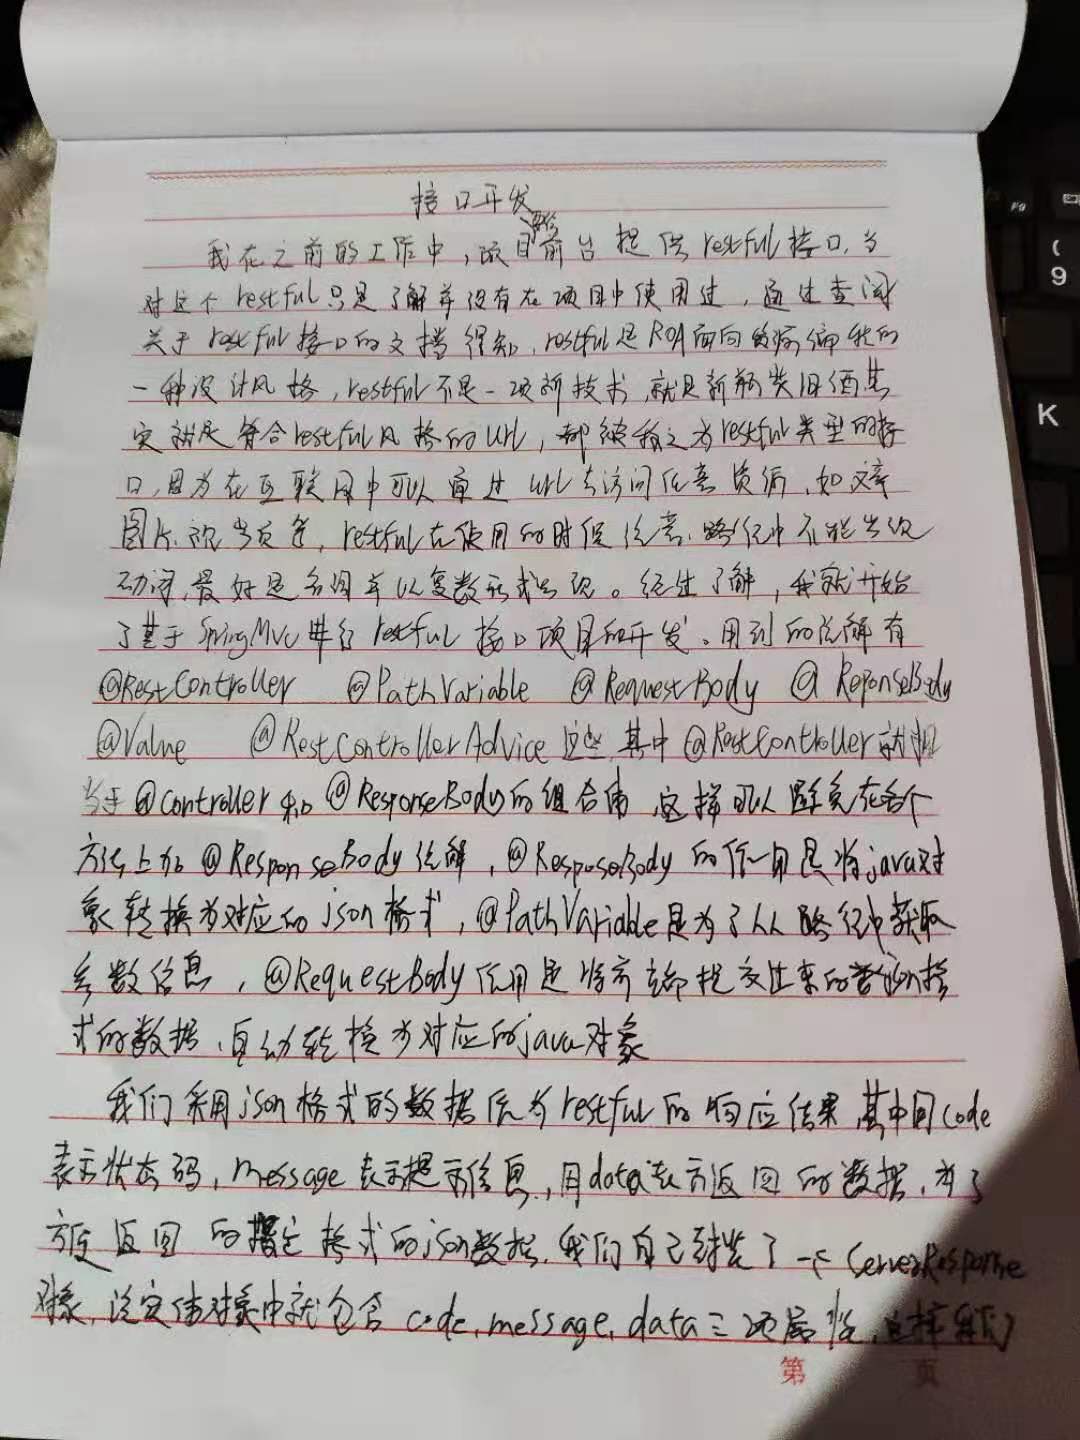 接口开发
我在之前的工作中，项目要给前台提供restful接口，当
对这个restful只是了解并没有在项目中使用过，通过查阅
关于restful接口的文档得知，restful是ROA面向资源编程的
一种设计风格，restful不是一项新技术，就是新瓶装旧酒其
实就是符合restful风格的url，都被称之为restful类型的接
口，因为在互联网中可以通过url去访问任意资源，如文章
图片、视频等，restful在使用的时候注意、路径中不能出现
动词，最好是名词并以复数形式出现。经过了解，我就开始
了基于SpringMvc进行restful接口项目的开发。用到的注解有
@RestController @PathVariable @RequestBody @ReponseBody
@Value @RestControllerAdvice 这些，其中@RestController就相
当于@Controller和@ResponseBody的组合体，这样可以避免在各个
方法上加@ResponseBody注解，@ResposeBody的作用是将java对
象转换为对应的json格式，@PathVariable是为了从路径中获取
参数信息，@RequestBody作用是将前端提交过来的json格
式的数据，自动转换为对应的java对象
我们采用json格式的数据作为restful的响应结果，其中用code
表示状态码，message表示提示信息，用data表示返回的数据，为了
方便返回的指定格式的json数据，我们自己封装了一个ServerResponse
对象，该实体对象中就包含code，message，data三项属性，
第 页
F9
( 9
K